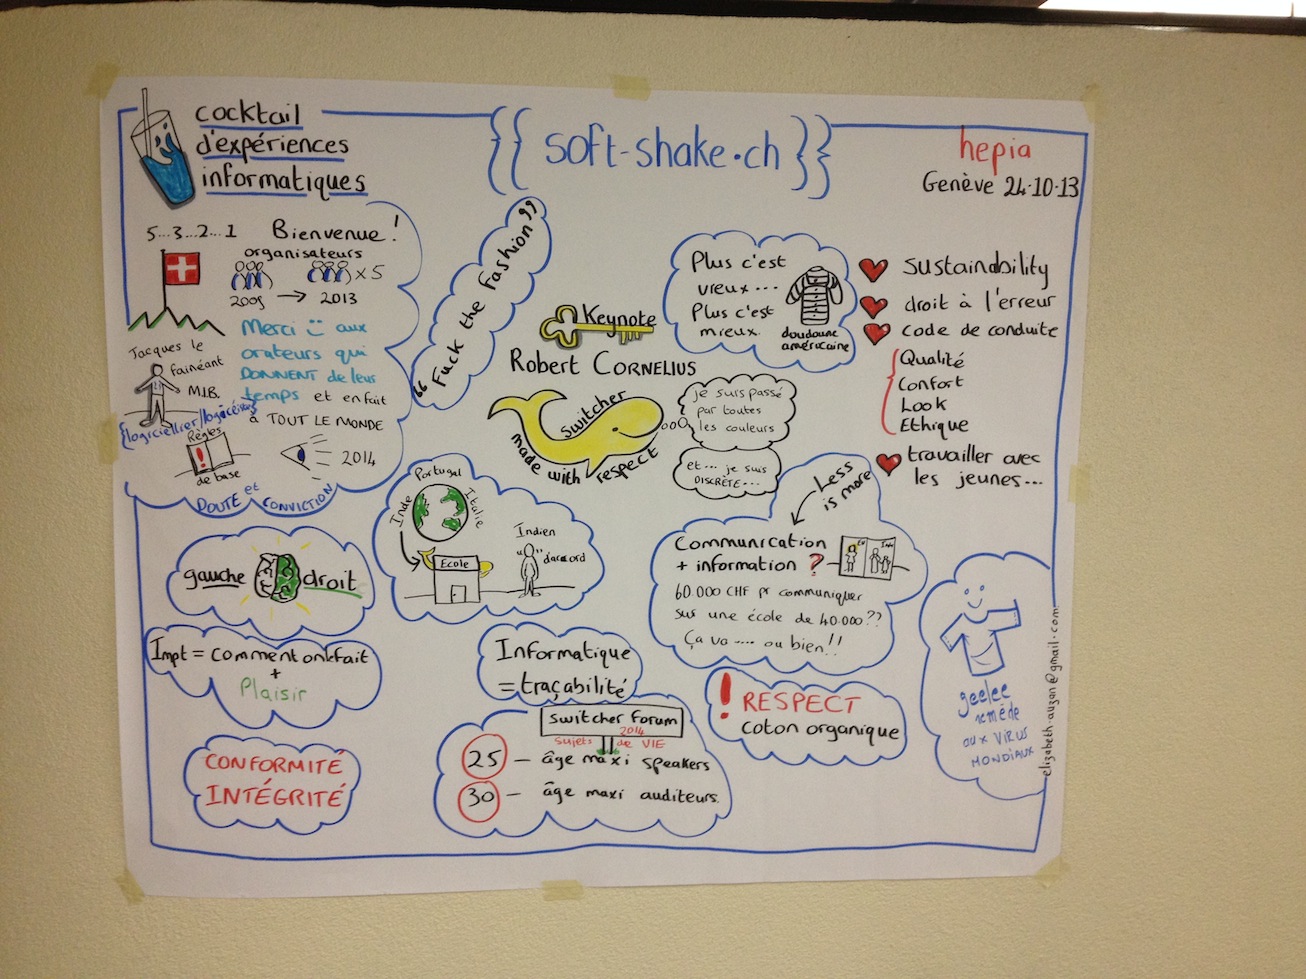 cocktail
d'expériences
informatiques
{{ soft-shake.ch }}
hepia
Genève 24.10.13
5...3...2...1 Bienvenue!
organisateurs
x 5
2009 → 2013
Merci aux
orateurs qui
DONNENT de leur
temps et en fait
à TOUT LE MONDE
Jacques le
fainéant
M.I.B.
Règles
!
de base
2014
DOUTE et CONVICTION
“Fuck the Fashion”
Keynote
Robert CORNELIUS
switcher
made with respect
je suis passé
par toutes
les couleurs
et... je suis
DISCRÈTE...
Plus c'est
vreux...
Plus c'est
mieux.
doudoune
américaine
sustainability
droit à l'erreur
code de conduite
Qualité
Confort
Look
Ethique
travailler avec
les jeunes...
Portugal
Inde
Italie
Ecole
Indien
"d'accord
Less
is more
Communication
+ information ?
60.000 CHF pr communiquer
sur une école de 40.000??
Ça va .... ou bien!!
gauche droit
Impt = comment on k fait
+
Plaisir
CONFORMITÉ
INTÉGRITÉ
Informatique
= traçabilité
switcher forum
2014
sujets de VIE
25 – âge maxi speakers
30 – âge maxi auditeurs.
! RESPECT
coton organique
geelee
remède
aux VIRUS
MONDIAUX
elizabeth.auzan@gmail.com